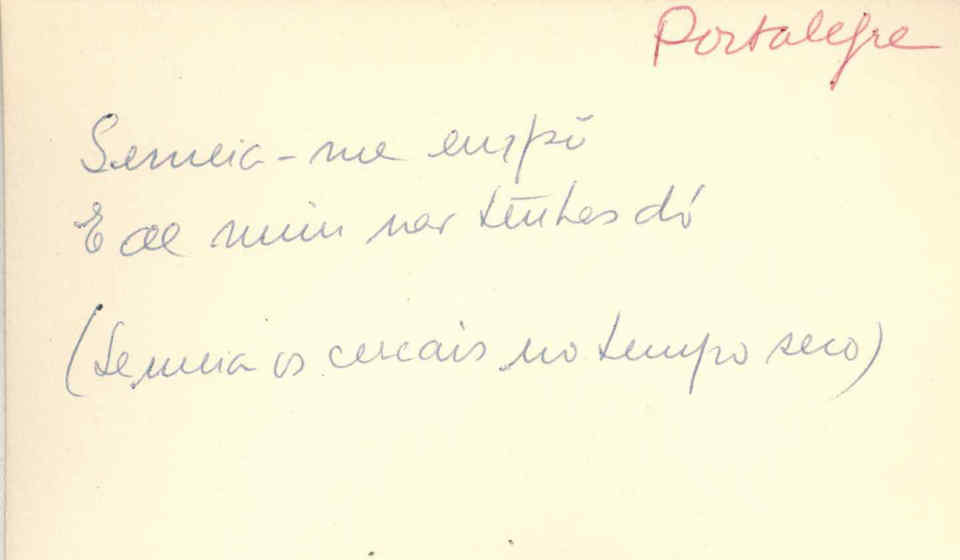 Portalegre
Semeia-me em pó
E de mim não tenhas dó
(Semeia os cereais no tempo seco)